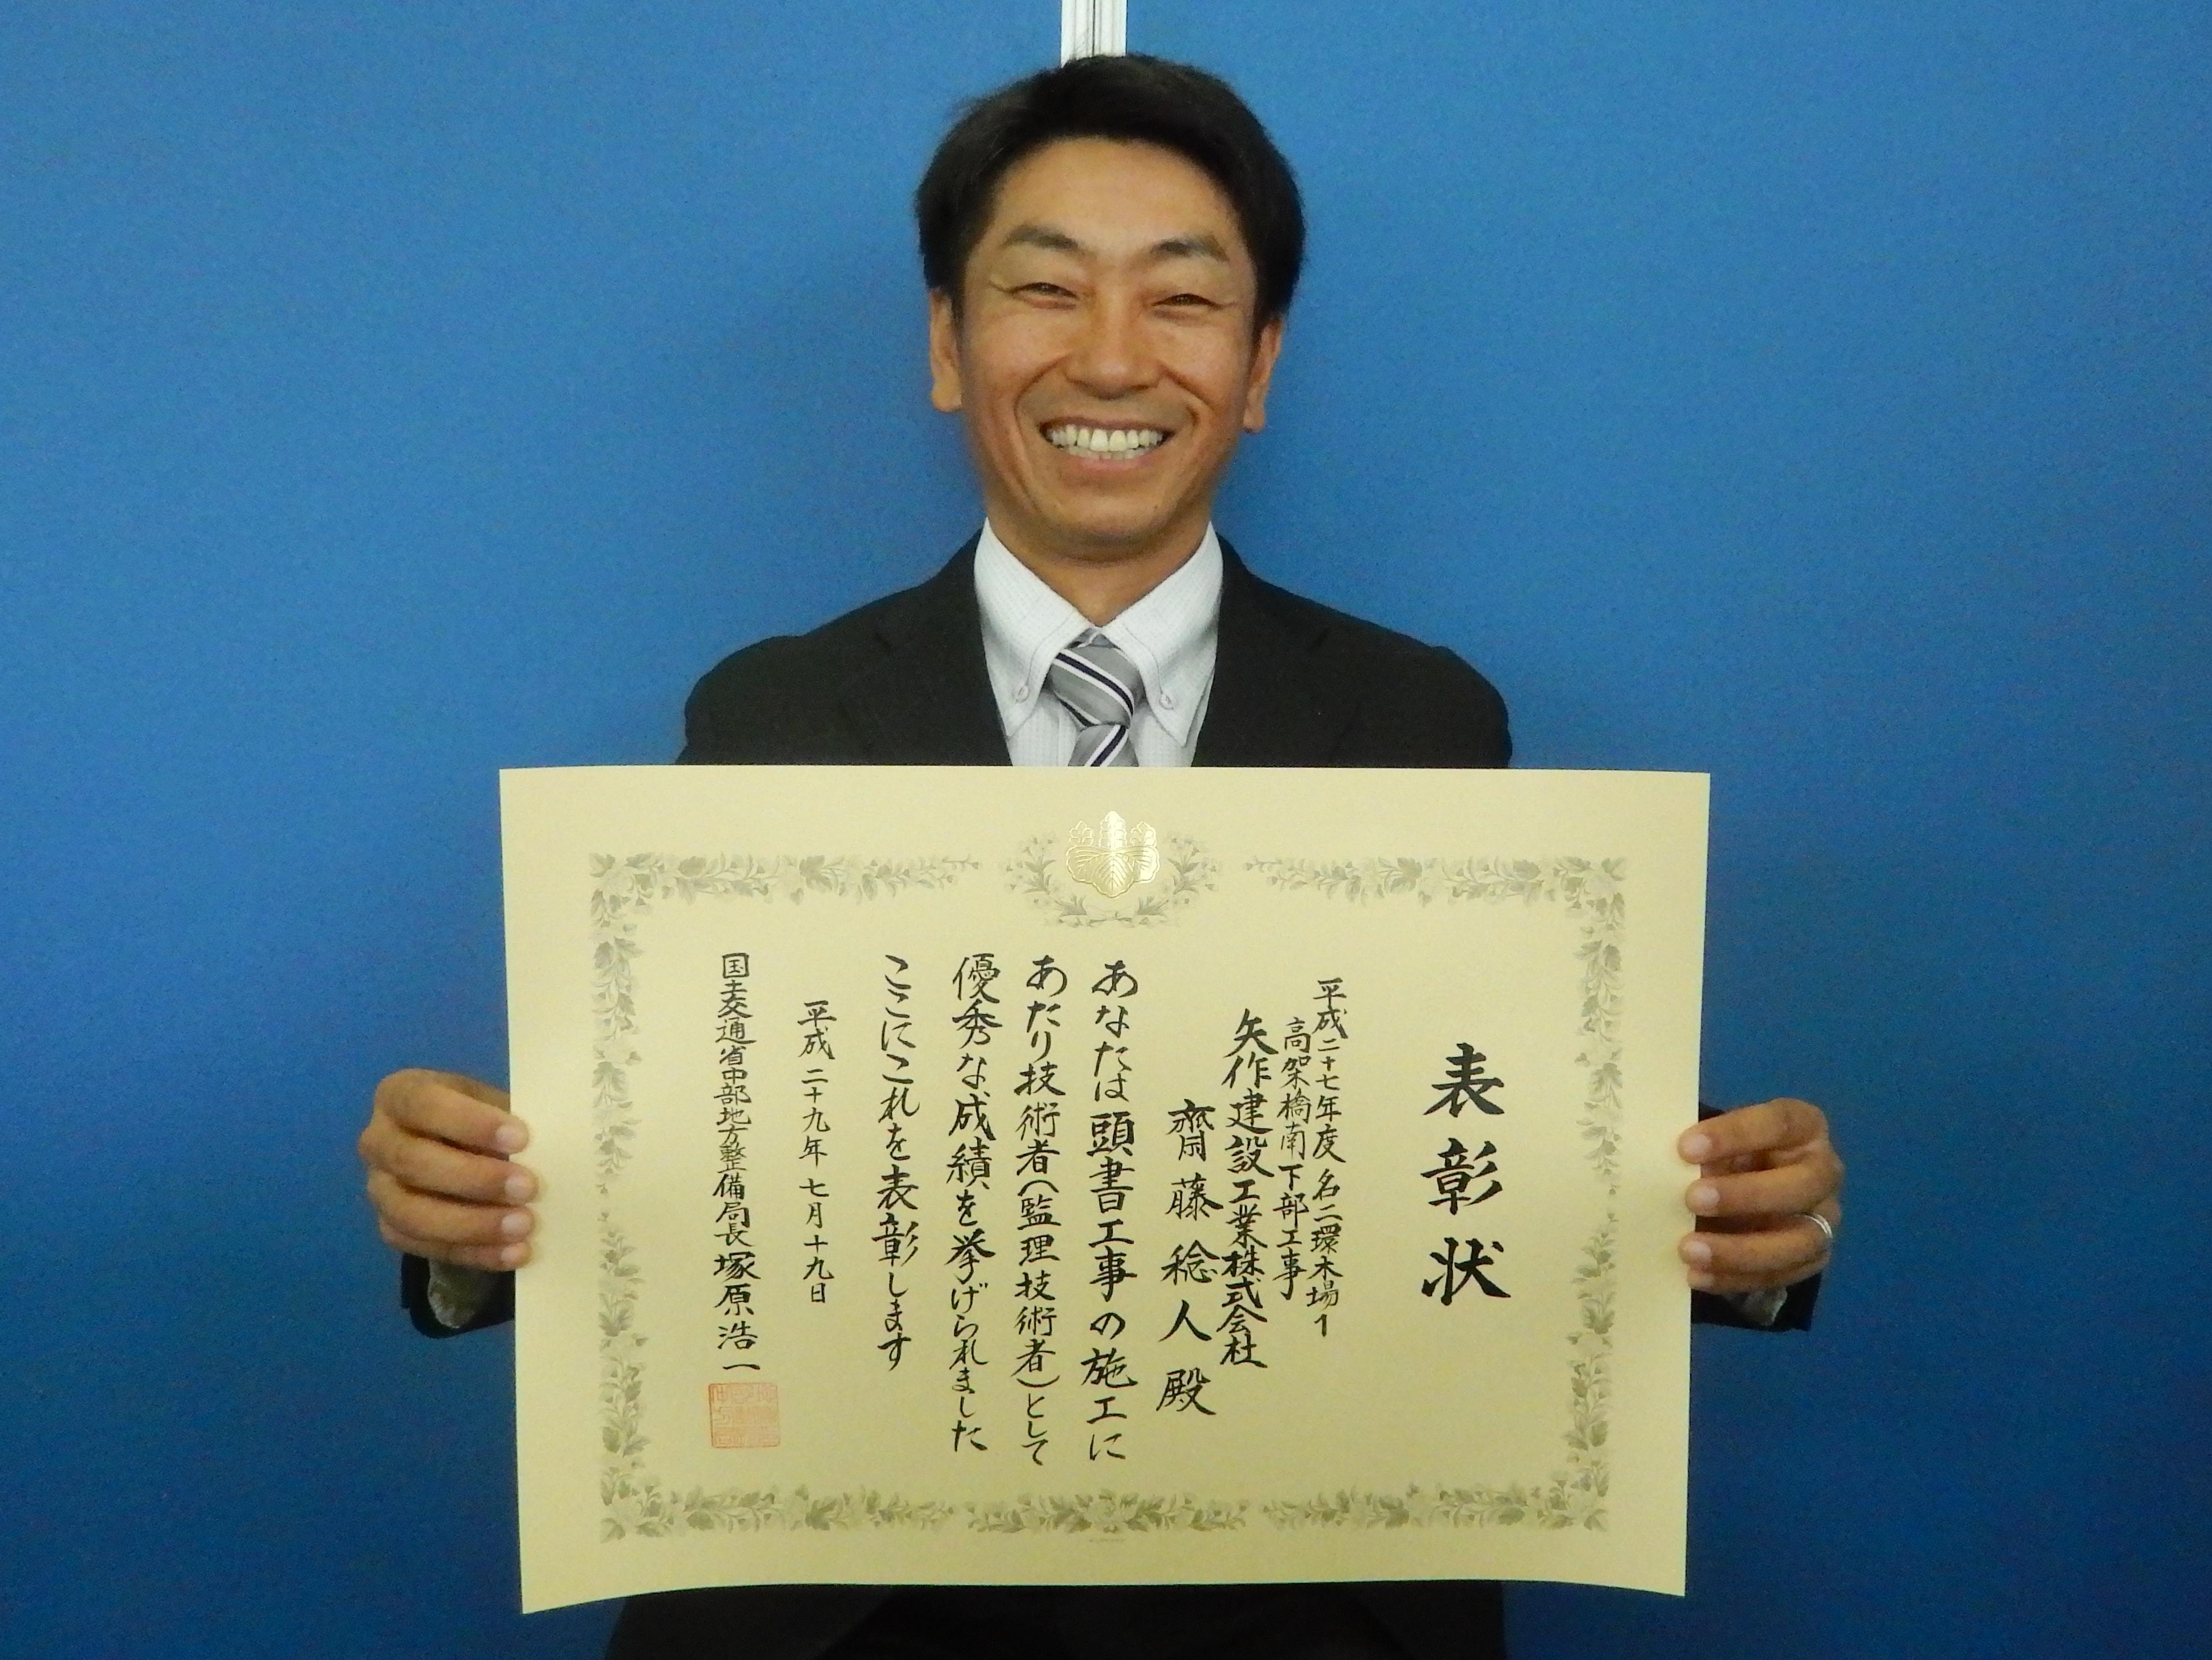 表彰状
平成二十七年度 名二環木場1
高架橋南下部工事
矢作建設工業株式会社
齋藤稔人殿
あなたは頭書工事の施工に
あたり技術者(監理技術者)として
優秀な成績を挙げられました
ここにこれを表彰します
平成二十九年七月十九日
国土交通省中部地方整備局長 塚原浩一